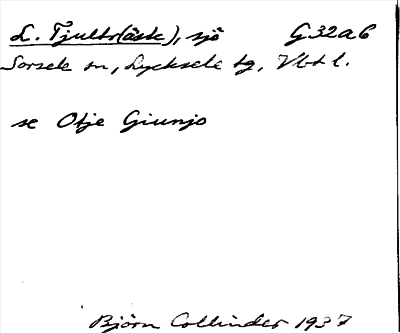 L. Tjultr(äsk), sjö G32a6
Sorsele sn, Lycksele tg, Vbt l.
se Otje Giunjo
Björn Collinder 1937